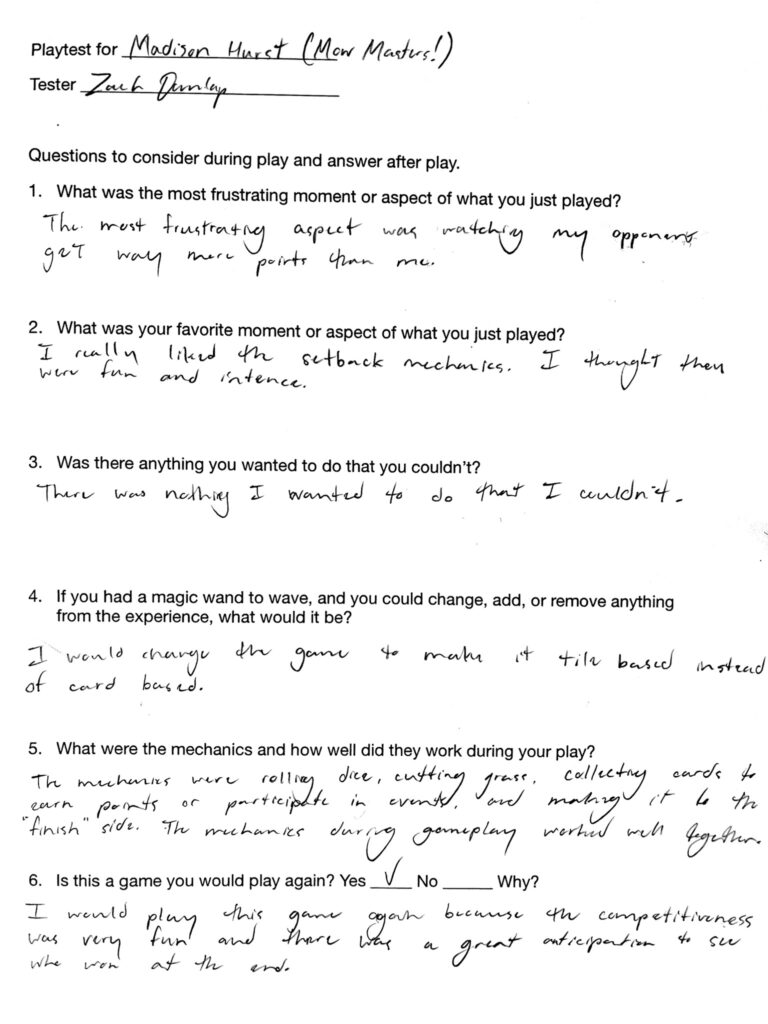 Playtest for Madison Hurst (Mow Masters!)
Tester Zach Dunlap
Questions to consider during play and answer after play.
1. What was the most frustrating moment or aspect of what you just played?
The most frustrating aspect was watching my opponents
get way more points than me.
2. What was your favorite moment or aspect of what you just played?
I really liked the setback mechanics. I thought they
were fun and intence.
3. Was there anything you wanted to do that you couldn't?
There was nothing I wanted to do that I couldn't.
4. If you had a magic wand to wave, and you could change, add, or remove anything
from the experience, what would it be?
I would change the game to make it tile based instead
of card based.
5. What were the mechanics and how well did they work during your play?
The mechanics were rolling dice, cutting grass, collecting cards to
earn points or participate in events, and making it to the
"finish" side. The mechanics during gameplay worked well together.
6. Is this a game you would play again? Yes √ No Why?
I would play this game again because the competitiveness
was very fun and there was a great anticipation to see
who won at the end.